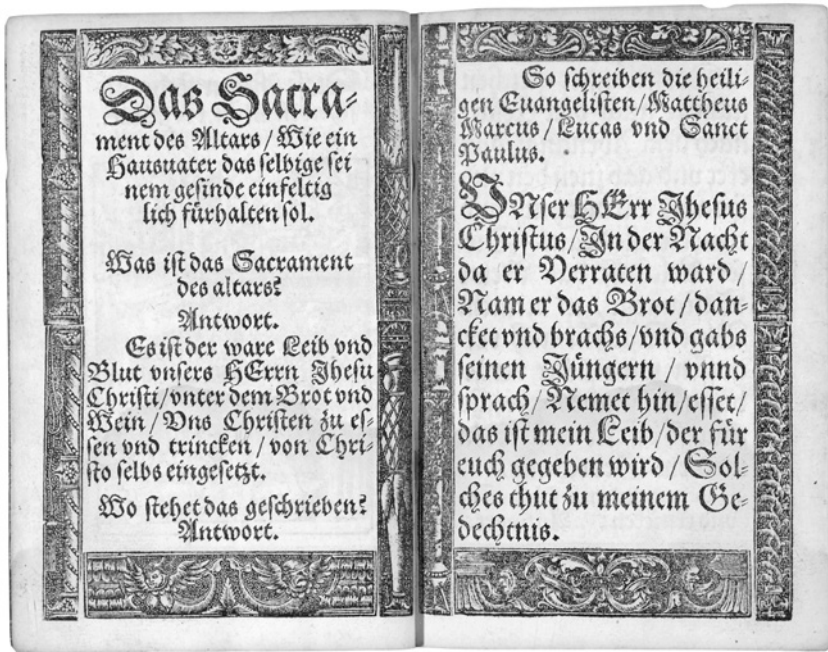 Das Sacra-
ment des Altars / Wie ein
Hausuater das selbige sei
nem gesinde einfeltig
lich fürhalten sol.
Was ist das Sacrament
des altars?
Antwort.
Es ist der ware Leib vnd
Blut vnsers HErrn Jhesu
Christi/vnter dem Brot vnd
Wein / Vns Christen zu es-
sen vnd trincken / von Chri-
sto selbs eingesetzt.
Wo stehet das geschrieben?
Antwort.
So schreiben die heili-
gen Euangelisten/Mattheus
Marcus / Lucas vnd Sanct
Paulus.
VNser HErr Jhesus
Christus/In der Nacht
da er Verraten ward /
Nam er das Brot / dan-
cket vnd brachs/vnd gabs
seinen Jüngern / vnnd
sprach/Nemet hin/esset/
das ist mein Leib/der für
euch gegeben wird / Sol-
ches thut zu meinem Ge-
dechtnis.